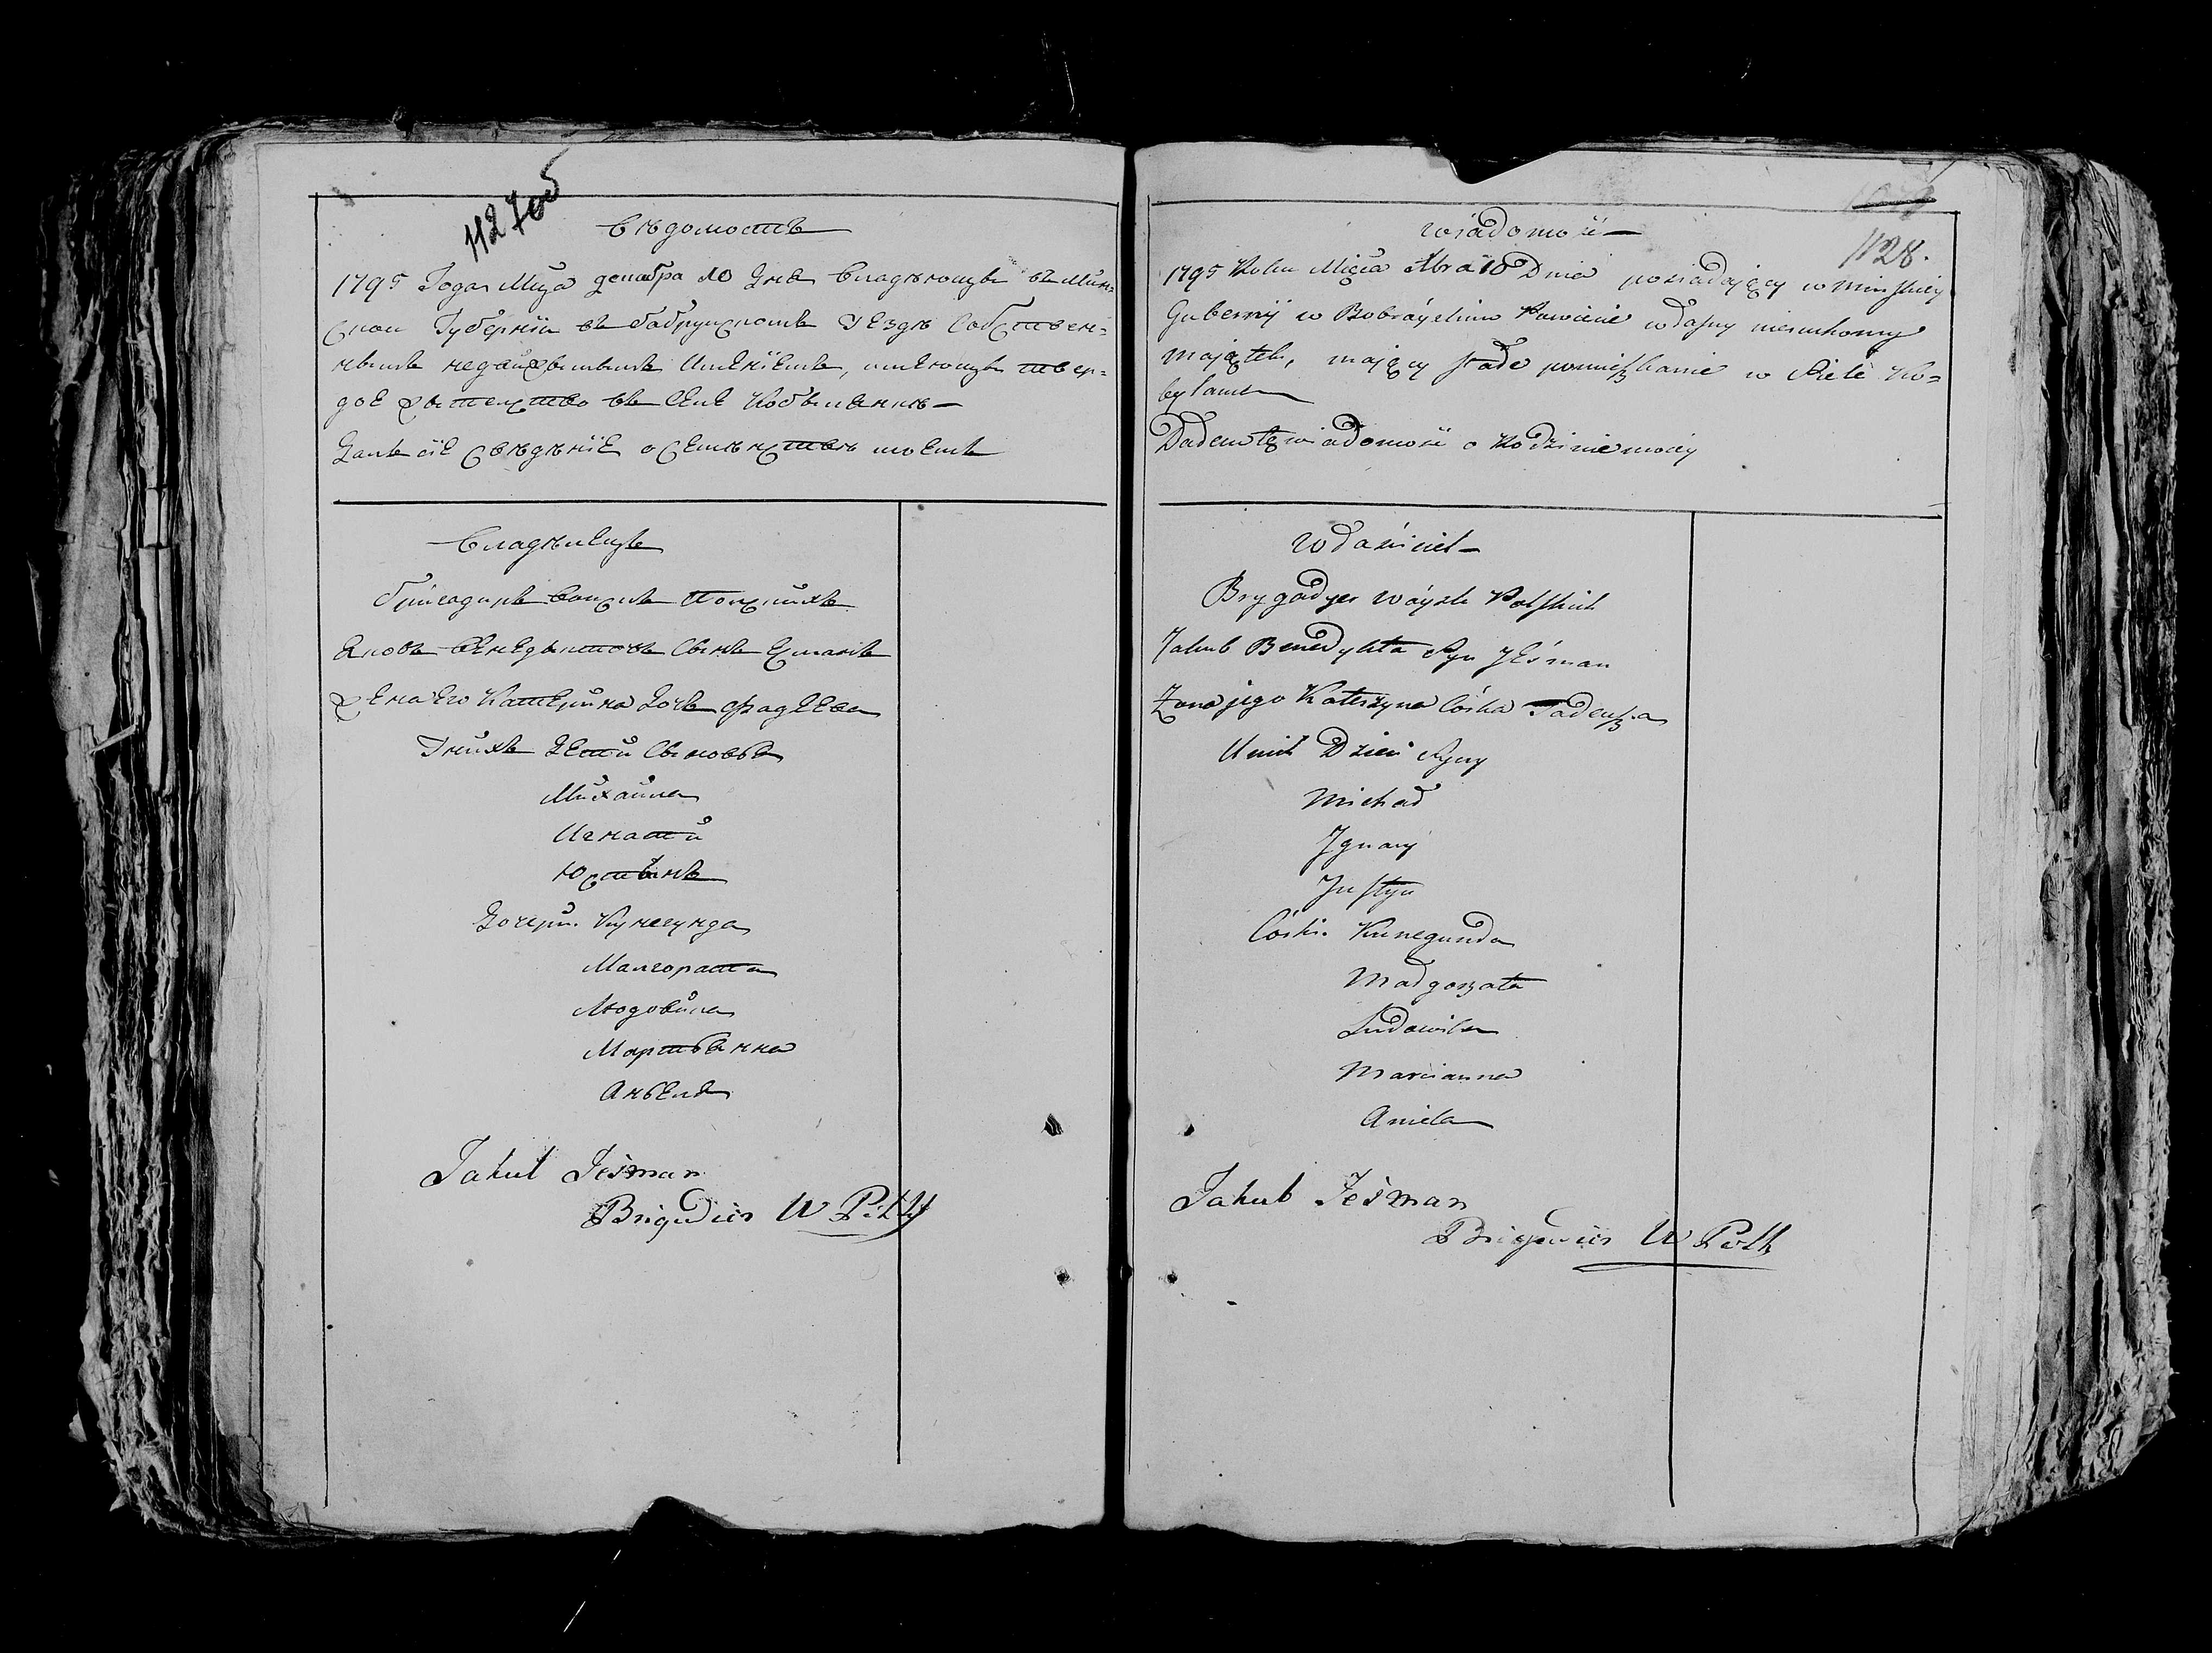 1127об
Вѣдомость
1795 Года Мцa декабра 10 Дня Владѣющы въ Мин=
скои Губернїи въ бабруискомъ Уездѣ Собствен=
нымъ недвижымымъ Именїемъ, имеющы твер=
дое жытелство въ Селе Кобылянкѣ
Далъ сїе свѣдѣнїе о семѣиствѣ моемъ
Владѣлецъ
бригадиръ воискъ Полскихъ
Яковъ бенедыктовъ Сынъ Есманъ
жена его Катерина Дочъ фадеева
У нихъ Дети Сыновья
Михаила
Игнатй
Юстынъ
Дочери. Кунегунда
Малгората
Людовила
Мартьянна
Аньеля
Jakub Jeśman
Brigadier W Polsk
1128.
Wiadomość
1795 Roku Mięca Xbra 10 Dnia posiadający w Minskiey
Gubernij w Bobruyskim Powiecie własny nieruchomy
Maiątek, maiący stałe pomieszkanie w Siele Ko=
bylance
Dałem tę wiadomość o Rodzinie moiey
Właściciel
Brygadyer Woysk Polskich
Jakub Benedykta Syn Jeśman
Żona jego Katerzyna Córka Tadeusza
U nich Dzieci Syny
Michał
Jgnacy
Justyn
Córki. Kunegunda
Małgorzata
Ludowila
Marcianna
Aniela
Jakub Jeśman
Brigadier W Polsk